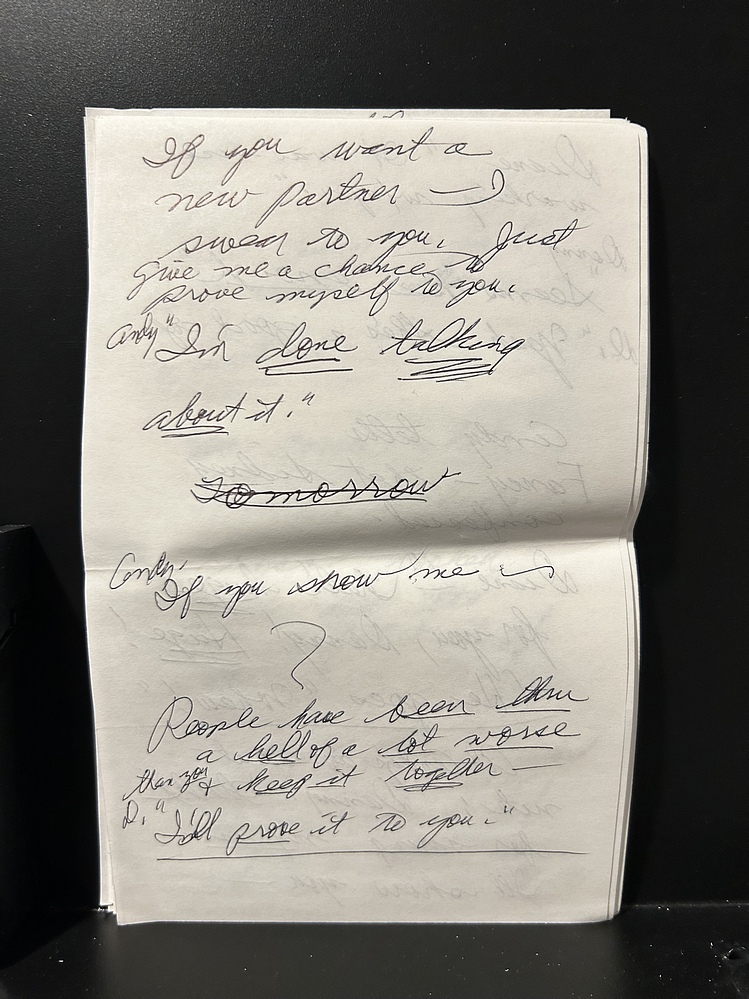 If you want a
new partner — I
swear to you. Just
give me a chance to
prove myself to you.
Andy "I'm done talking
about it."
Tomorrow
Andy. If you show me
?
People have been thru
a hell of a lot worse
than you & keep it together —
D. "I'll prove it to you."